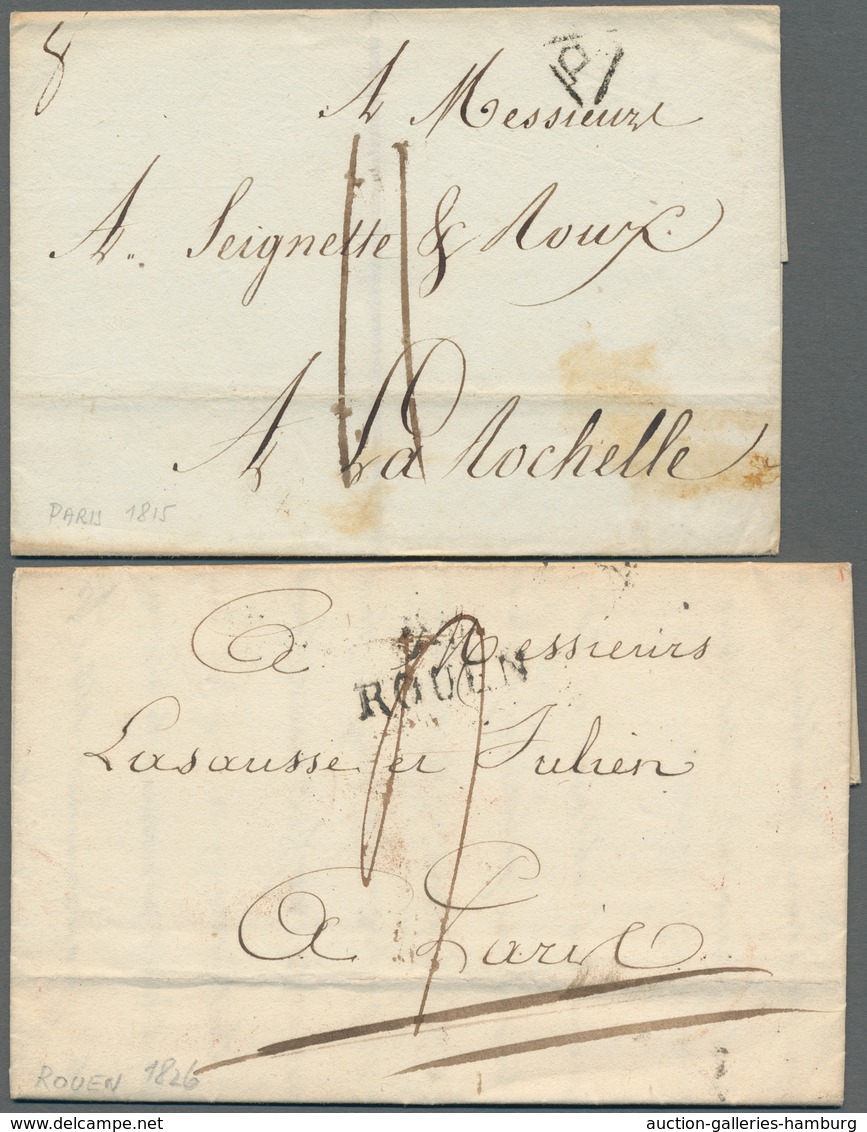 8
P
A Messieurs
A.. Seignette & Roux
11
A La Rochelle
PARIS 1815
A Messieurs
ROUEN
Lasausse et Julien
A Paris
ROUEN 1826
auction-galleries-hamburg